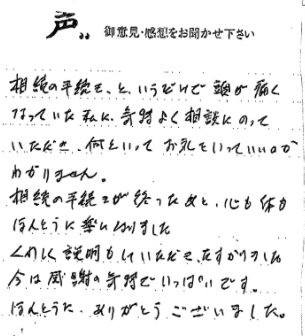 声。 御意見・感想をお聞かせ下さい
相続の手続を、と、いうだけで頭が痛く
なっていた私に、気持よく相談にのって
いただき、何といってお礼をいっていいのか
わかりません。
相続の手続きが終ったあと、心も体も
ほんとうに楽になりました
くわしく説明もしていただき、たすかりました
今は感謝の気持でいっぱいです。
ほんとうに、ありがとうございました。